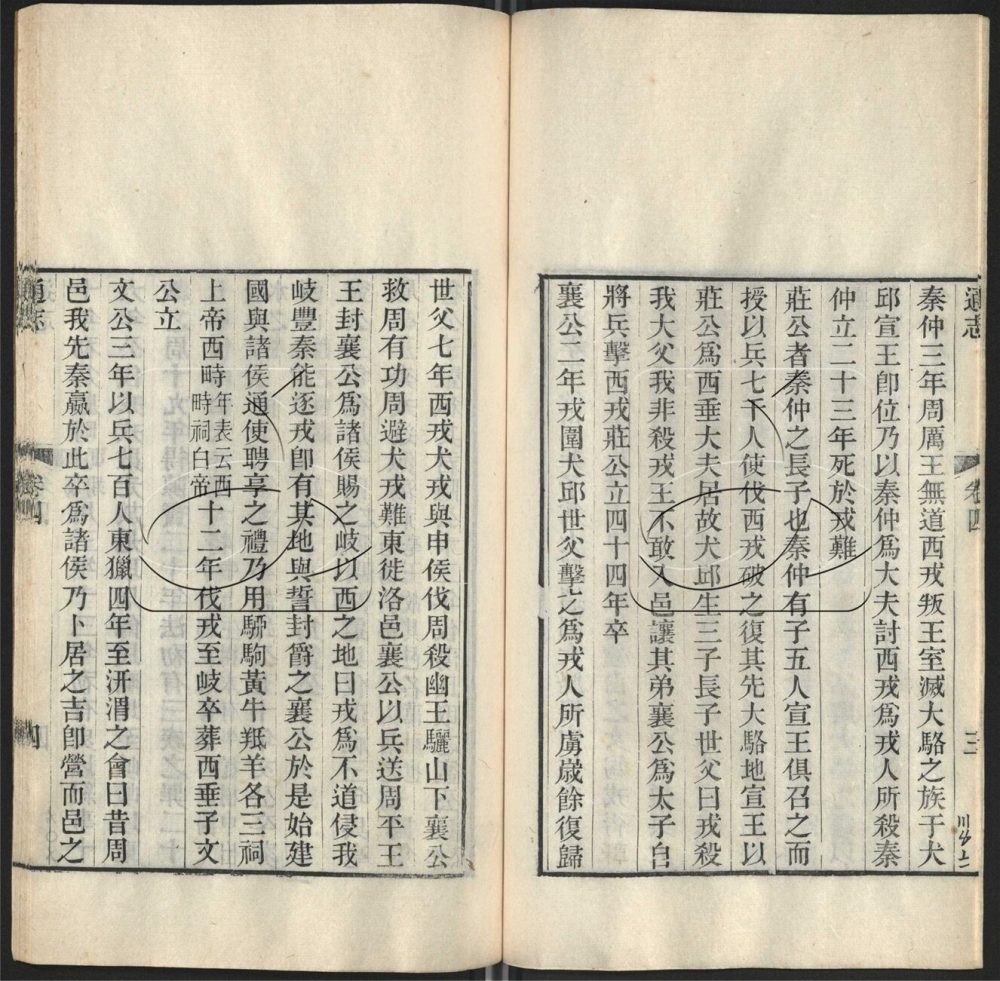 通志
卷四
三
秦仲三年周厲王無道西戎叛王室滅大駱之族于犬
邱宣王卽位乃以秦仲爲大夫討西戎爲戎人所殺秦
仲立二十三年死於戎難
莊公者秦仲之長子也秦仲有子五人宣王俱召之而
授以兵七千人使伐西戎破之復其先大駱地宣王以
莊公爲西垂大夫居故犬邱生三子長子世父曰戎殺
我大父我非殺戎王不敢入邑讓其弟襄公爲太子自
將兵擊西戎莊公立四十四年卒
襄公二年戎圍犬邱世父擊之爲戎人所虜歲餘復歸
世父七年西戎犬戎與申侯伐周殺幽王驪山下襄公
救周有功周避犬戎難東徙洛邑襄公以兵送周平王
王封襄公爲諸侯賜之岐以西之地曰戎爲不道侵我
岐豐秦能逐戎卽有其地與誓封爵之襄公於是始建
國與諸侯通使聘享之禮乃用駵駒黃牛羝羊各三祠
上帝西畤年表云西畤祠白帝十二年伐戎至岐卒葬西垂子文
公立
文公三年以兵七百人東獵四年至汧渭之會曰昔周
邑我先秦嬴於此卒爲諸侯乃卜居之吉卽營而邑之
通志
卷四
四